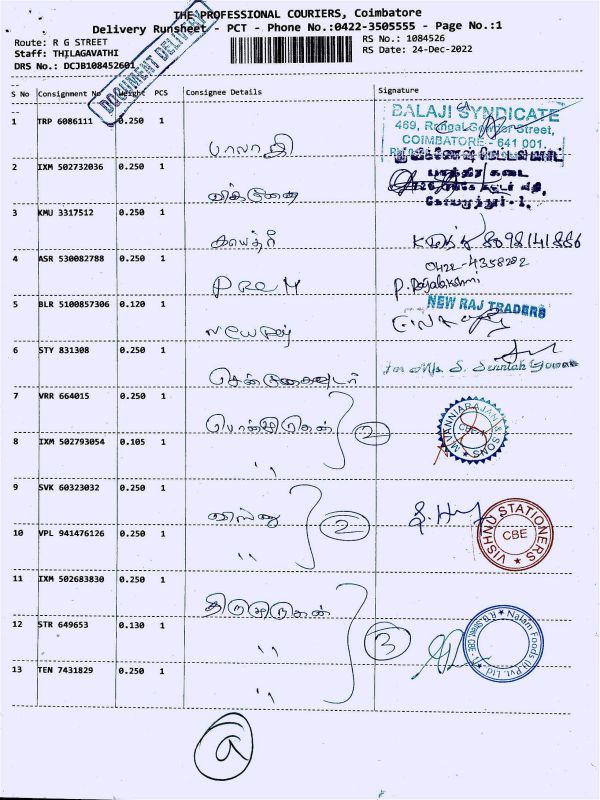 THE PROFESSIONAL COURIERS, Coimbatore
Delivery Runsheet - PCT - Phone No.:0422-3505555 - Page No.:1
Route: R G STREET
RS No.: 1084526
Staff: THILAGAVATHI
RS Date: 24-Dec-2022
DRS No.: DCJB108452601
DOCUMENT DELIVERY
S No Consignment No Weight PCS Consignee Details Signature
1 TRP 6086111 0.250 1 பாலாஜி
BALAJI SYNDICATE
469, Rangai Gowder Street,
COIMBATORE - 641 001.
2 IXM 502732036 0.250 1
பாத்திர கடை
கோயமுத்தூர்-1.
3 KMU 3317512 0.250 1 காயத்ரி 8098141886
4 ASR 530082788 0.250 1 PREM
0422-4358282
P. Rajalakshmi
5 BLR 5100857306 0.120 1
NEW RAJ TRADERS
6 STY 831308 0.250 1
for M/s. S. Senniah Gowder
7 VRR 664015 0.250 1
8 IXM 502793054 0.105 1 ,, 2
CBE
& SONS
9 SVK 60323032 0.250 1 விஸ்ணு
10 VPL 941476126 0.250 1 ,, 2
VISHNU STATIONERS
CBE
11 IXM 502683830 0.250 1 திருமுருகன்
12 STR 649653 0.130 1 ,, 3
Nalam Foods (I) Pvt. Ltd
13 TEN 7431829 0.250 1 ,,
a